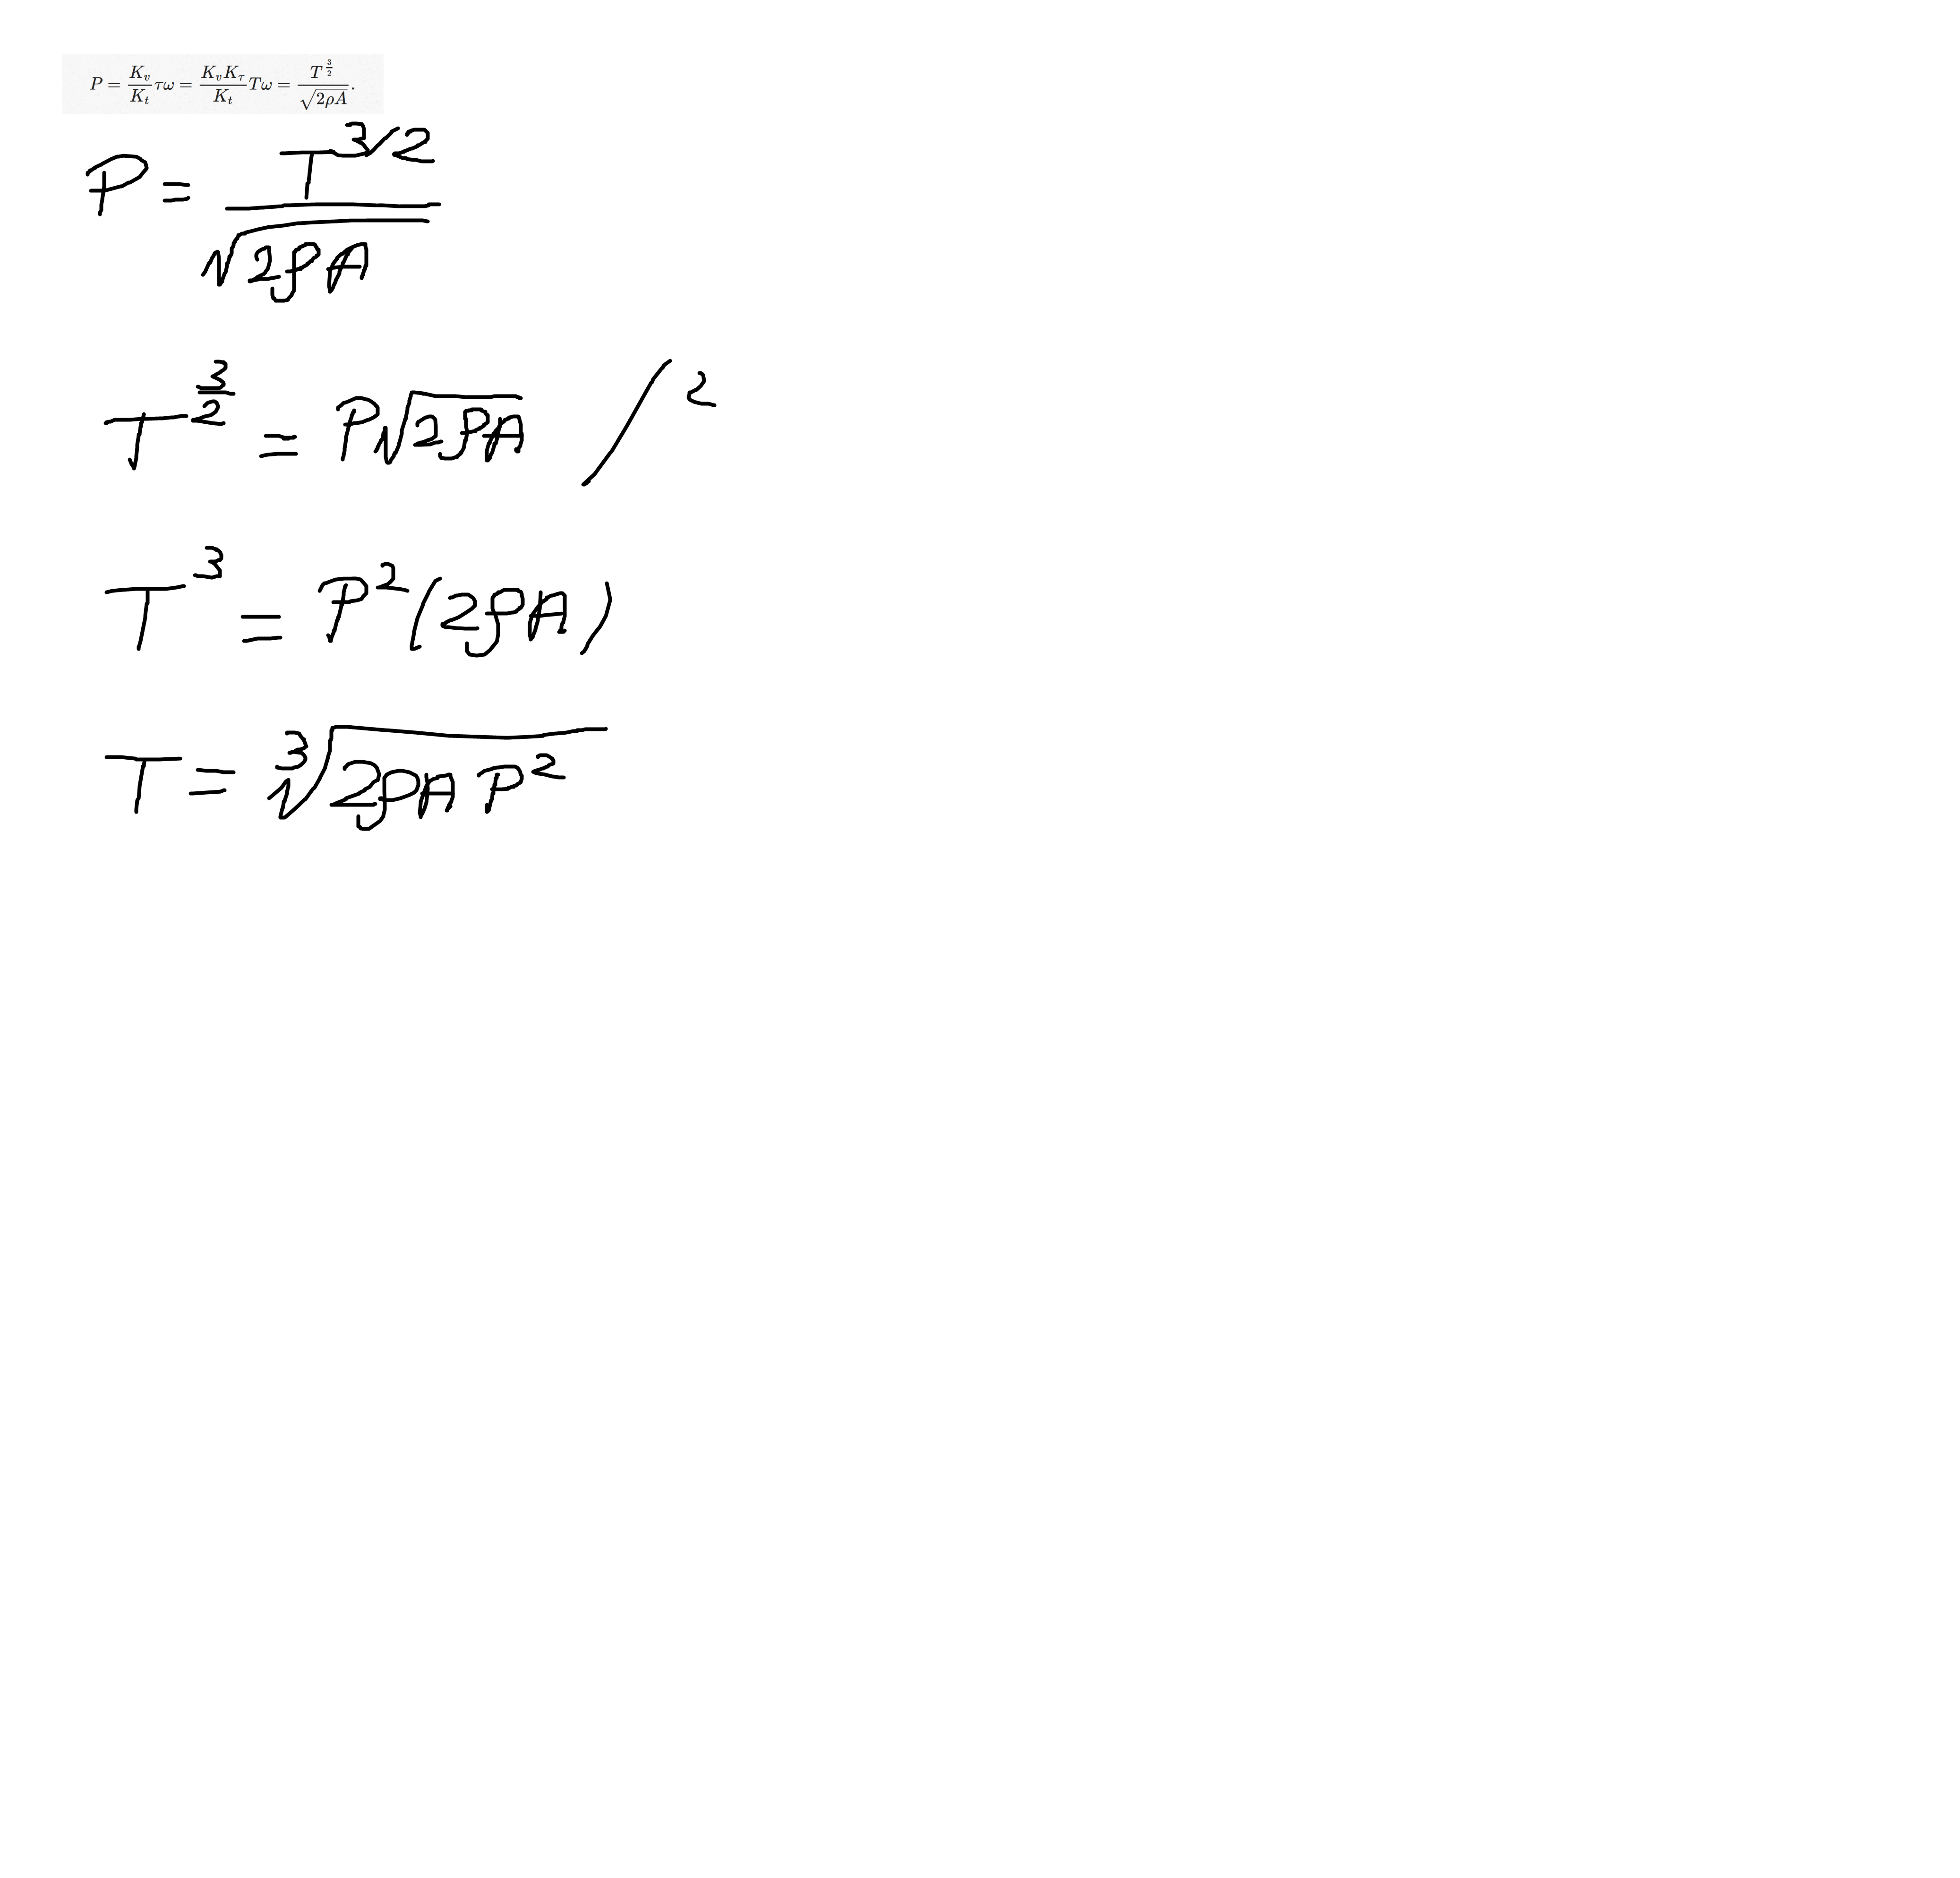 P = K_v/K_t τω = K_v K_τ/K_t Tω = T^{3/2}/√(2ρA).
P = T^{3/2}/√(2ρA)
T^{3/2} = P√(2ρA) /²
T³ = P²(2ρA)
T = ³√(2ρA P²)